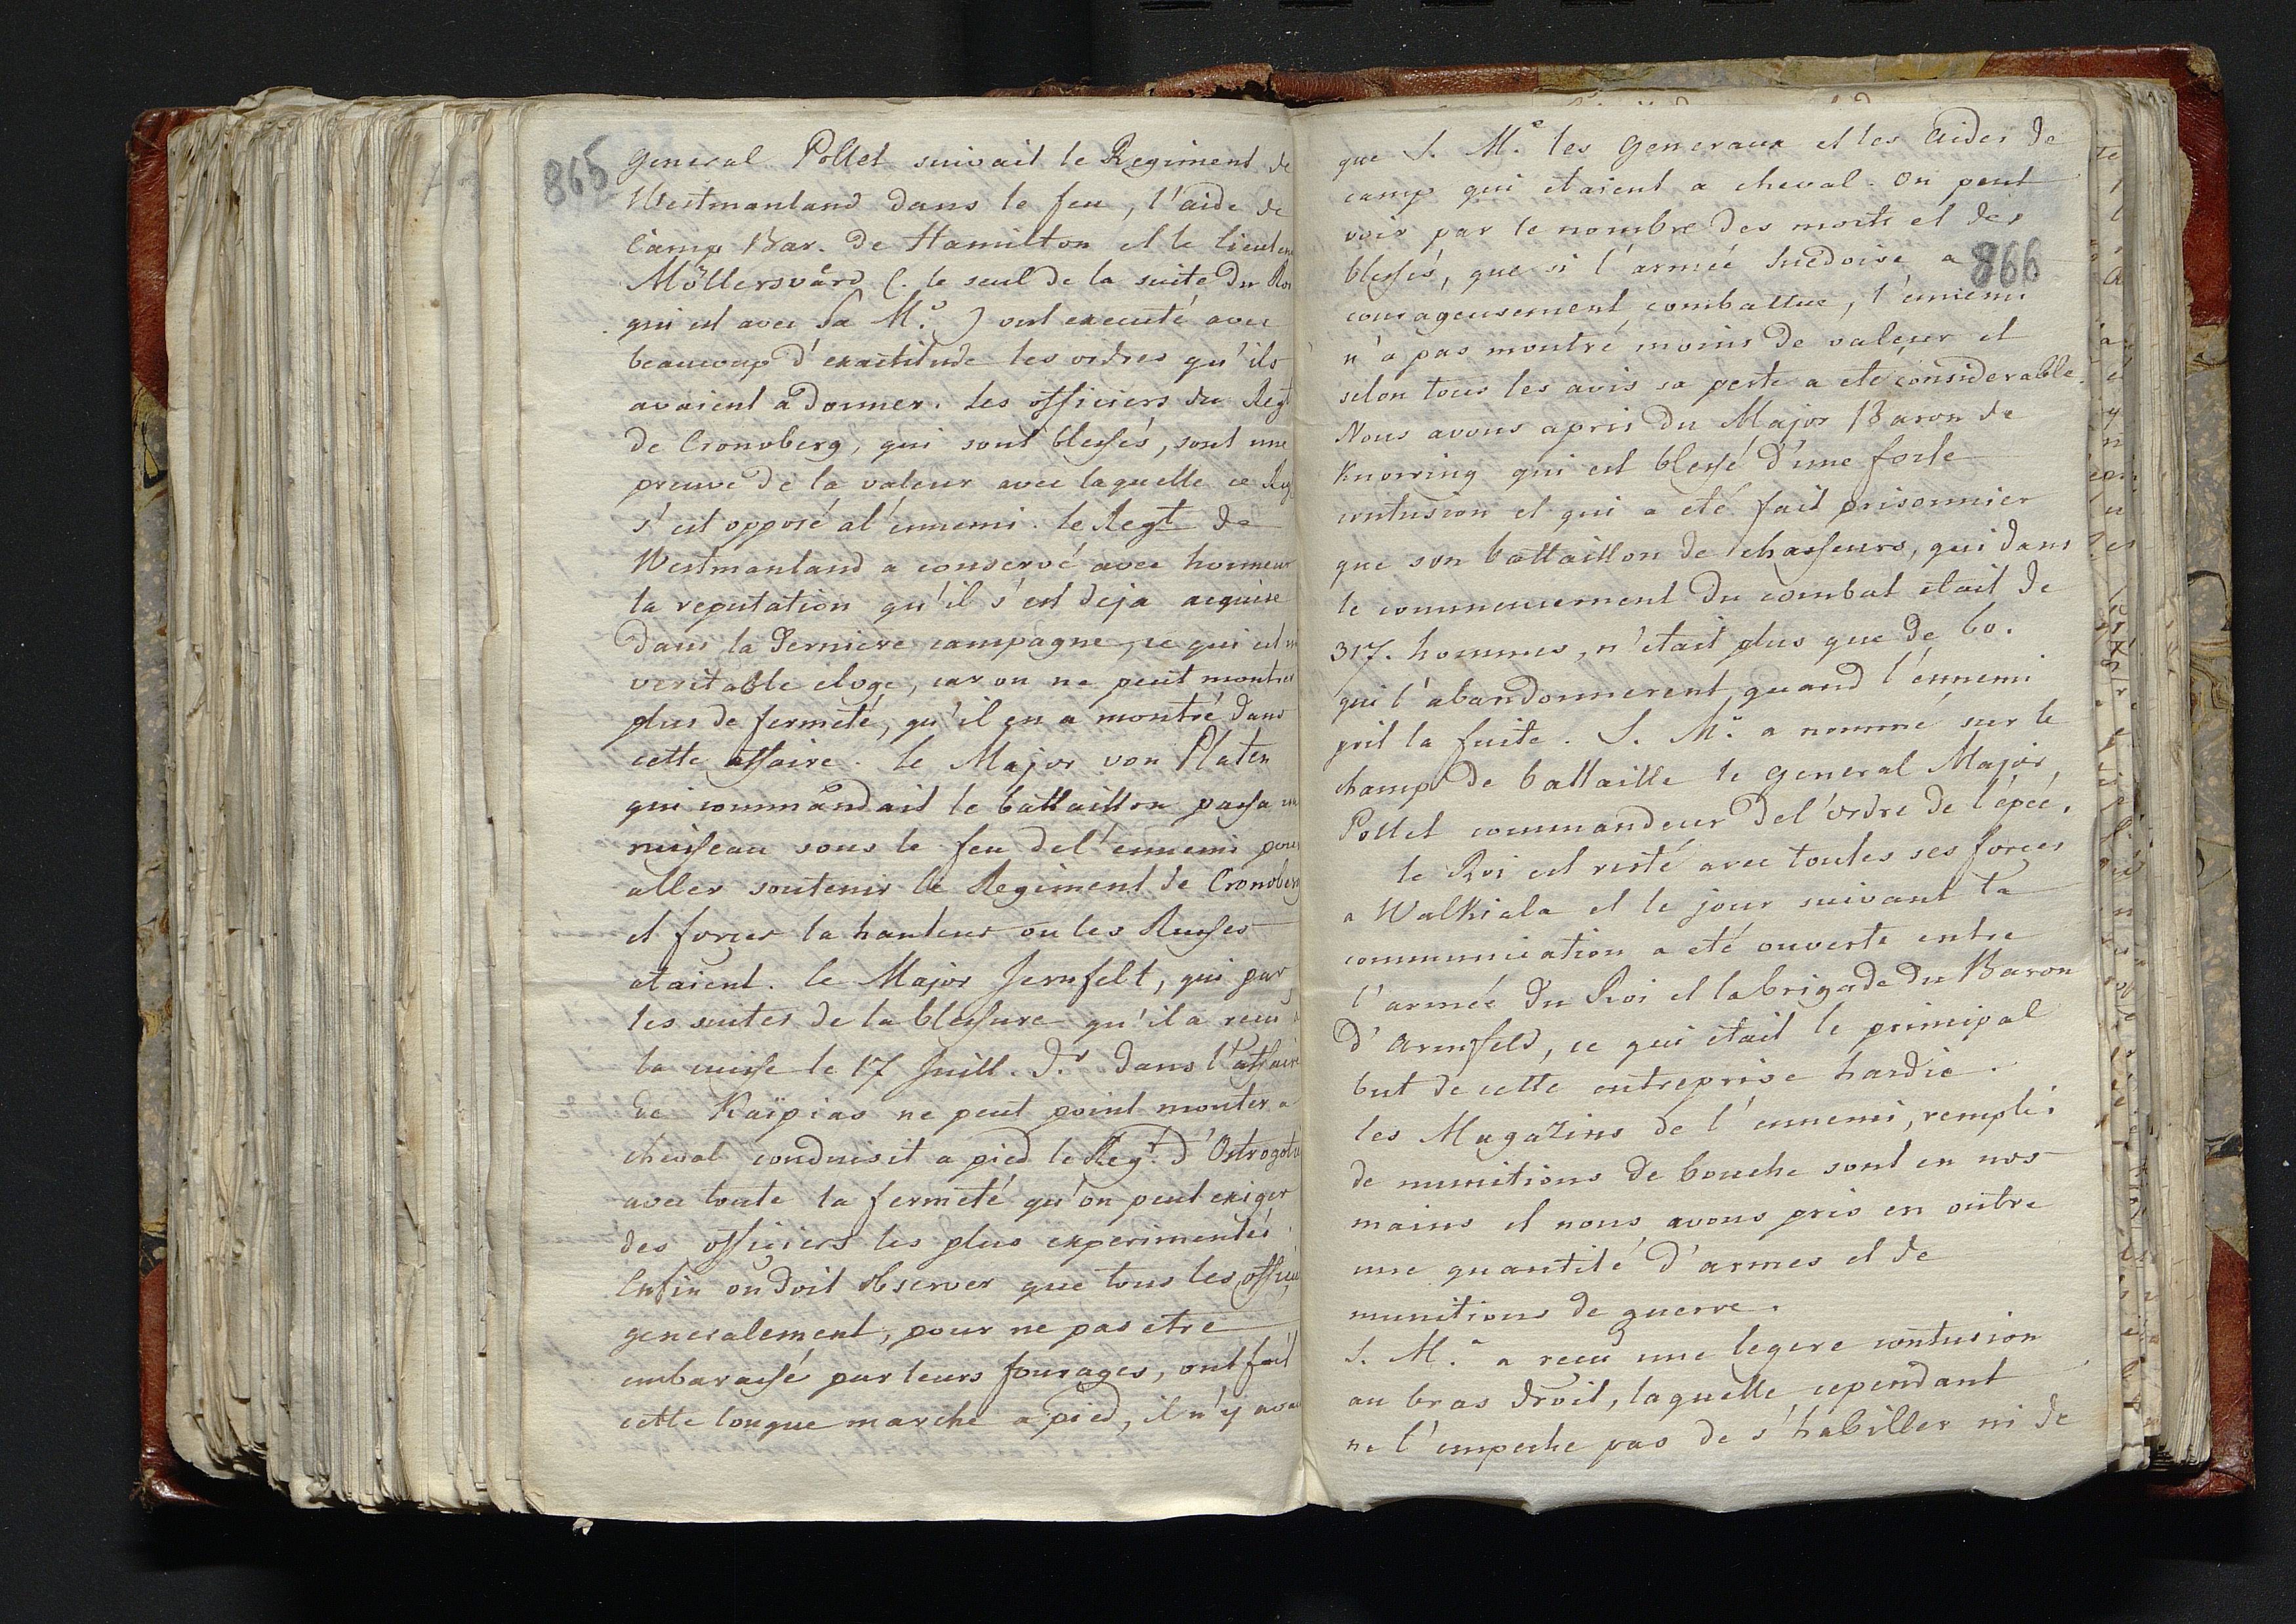 865
General Pollet suivait le Regiment de
Westmanland dans le feu, l'aide de
Camp Bar. de Hamilton et le lieuten
Möllersvärd (. le seul de la suite du Roi
qui est avec Sa M.e ) ont executé avec
beaucoup d'exactitude les ordres qu'ils
avaient a donner. les officiers du Regt
de Cronoberg, qui sont blessés, sont une
preuve de la valeur avec laquelle ce Regt
s'est opposé a l'ennemi. le Regt de
Westmanland a conservé avec honneur
la reputation qu'il s'est deja acquise
dans la derniere campagne, ce qui est un
veritable eloge, car on ne peut montrer
plus de fermeté, qu'il en a montré dans
cette affaire. le Major von Platen
qui commandait le battaillon passa un
ruisseau sous le feu de l'ennemi pour
aller soutenir le Regiment de Cronoberg
et forcer la hauteur ou les Russes
etaient. le Major Jernfelt, qui par
les suites de la blessure qu'il a recu a
la cuisse le 17 Juill. d.r dans l'affaire
de Kaïpias ne peut point monter a
cheval conduisit a pied le Regt. d'Ostrogoth
avec toute la fermeté qu'on peut exiger
des officiers les plus experimentés.
Enfin on doit observer que tous les offici
generalement, pour ne pas etre
embarassé par leurs fourages, ont fait
cette longue marche a pied, il n'y avai
que S. M.e les Generaux et les Aides de
camp qui etaient a cheval. On peut
voir par le nombre des morts et des
blessés, que si l'armée suedoise a
866
courageusement combattue, l'ennemi
n'a pas montré moins de valeur et
selon tous les avis sa perte a eté considerable.
Nous avons apris du Major Baron de
Knorring qui est blessé d'une forte
contusion et qui a eté fait prisonnier
que son battaillon de chasseurs, qui dans
le commencement du combat etait de
317. hommes, n'etait plus que de 60.
qui l'abandonnerent quand l'ennemi
prit la fuite. S. M.e a nommé sur le
champ de battaille le General Major
Pollet commandeur de l'ordre de l'épée.
le Roi est resté avec toutes ses forces
a Walkiala et le jour suivant la
communication a eté ouverte entre
l'armée du Roi et la brigade du Baron
d'Armfeld, ce qui etait le principal
but de cette entreprise hardie.
les Magazins de l'ennemi, rempli
de munitions de bouche sont en nos
mains et nous avons pris en outre
une quantité d'armes et de
munitions de guerre.
S. M.e a recu une legere contusion
au bras droit, laquelle cependant
ne l'empeche pas de s'habiller ni de